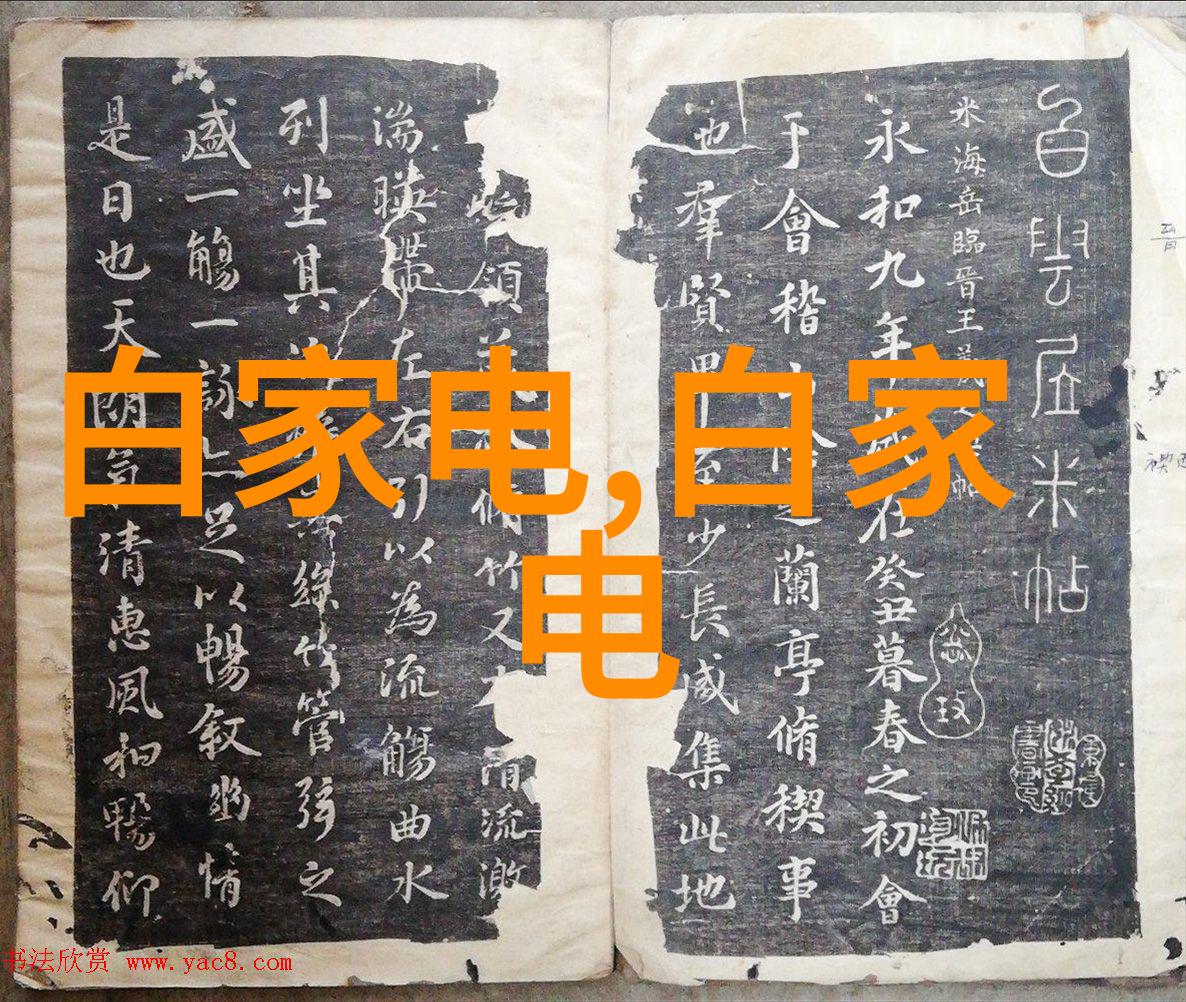 白雲居米帖
米海岳臨晉王羲之帖
永和九年歲在癸丑暮春之初會
于會稽山陰之蘭亭脩禊事
也羣賢畢至少長咸集此地
領茂林脩竹又有清流激
湍暎帶左右引以為流觴曲水
列坐其次雖無絲竹管弦之
盛一觴一詠亦足以暢敘幽情
是日也天朗氣清惠風和暢仰
白家电,白家
电
书法欣赏 www.yac8.com